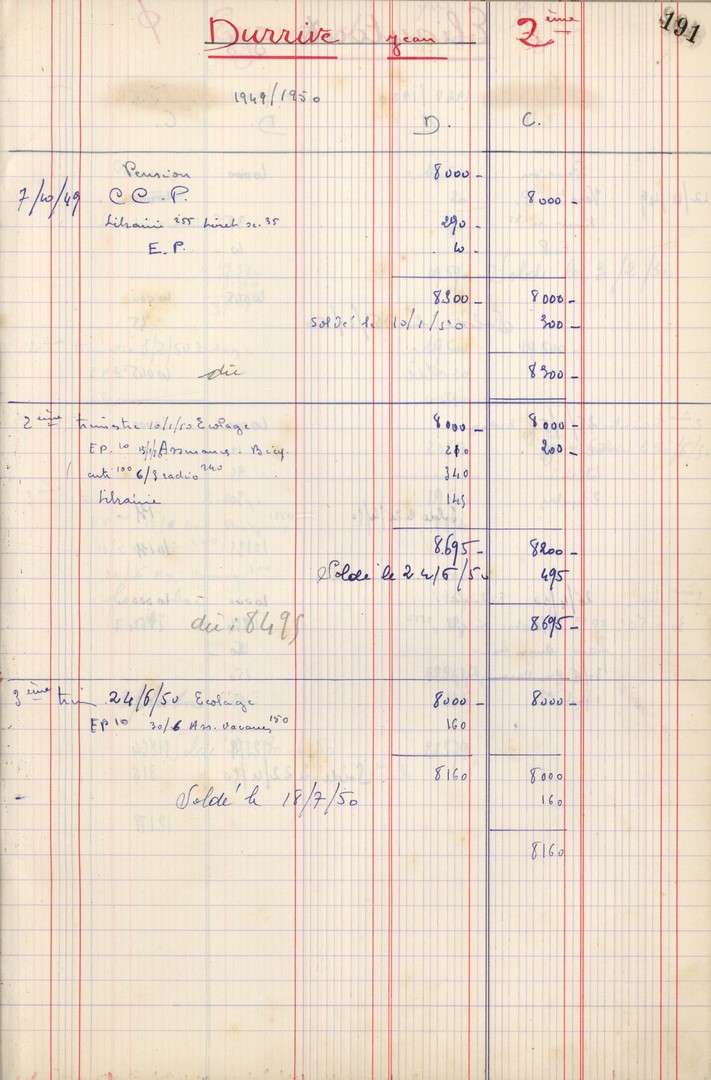 Durrive Jean 2ème 191
1949/1950
D. C.
Pension 8000-
7/10/49 C C.P. 8000-
Librairie 255 Livret sc. 35 290-
E.P. 10-
8300- 8000-
Soldé le 10/1/50 300-
dû 8300-
2ème trimestre 10/1/50 Ecolage 8000- 8000-
EP. 10 Assurance Bicy. 210 200-
100 6/3 radio 240 340
Librairie 145
8.695- 8200-
Soldé le 24/6/50 495
dû : 8495 8695-
3ème trim 24/6/50 Ecolage 8000- 8000-
EP 10 30/6 Ass. vacances 150 160
8160 8000
Soldé le 18/7/50 160
8160